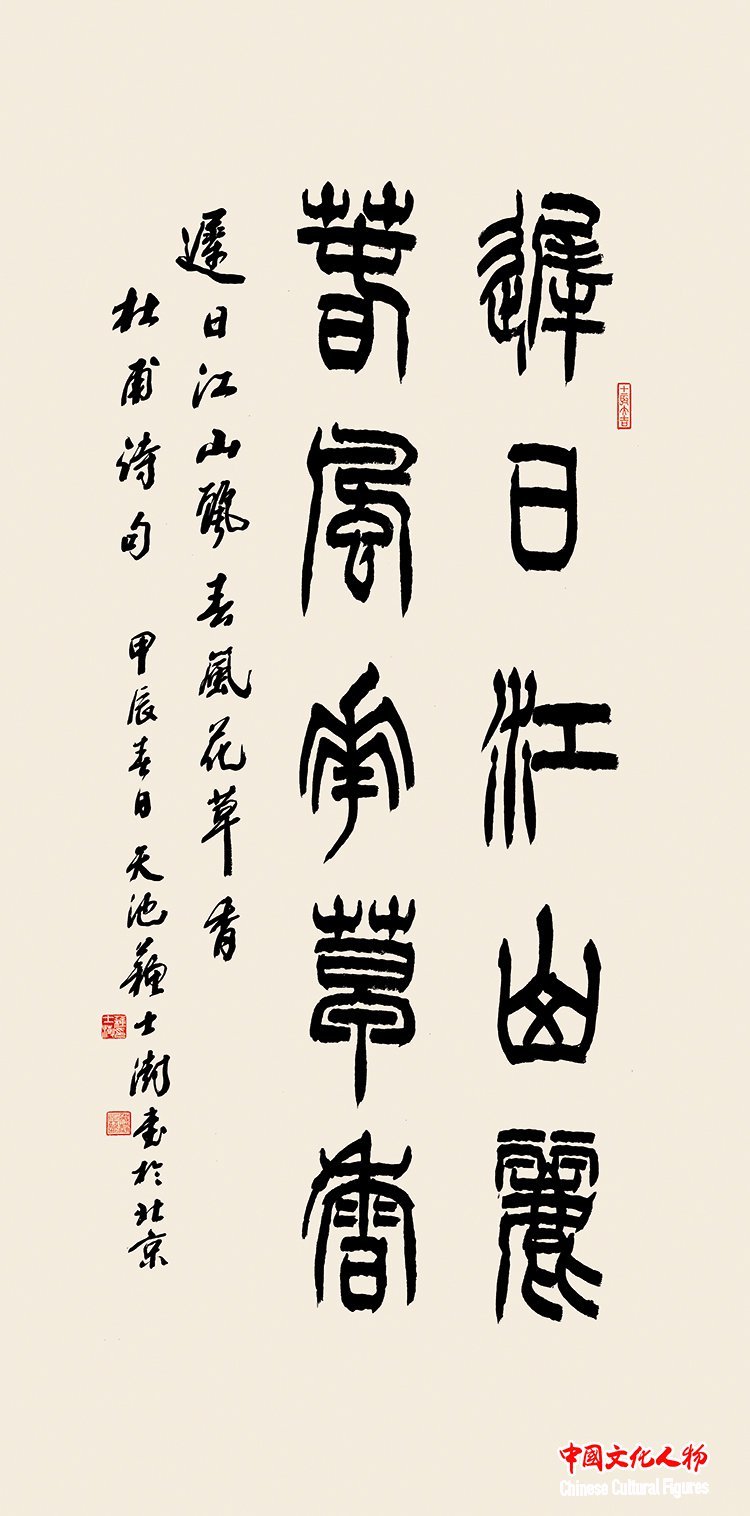 遲日江山麗
萅風等草香
遲日江山麗春風花草香
杜甫詩句 甲辰春日天池蘇士澍書於北京
中國文化人物
Chinese Cultural Figures